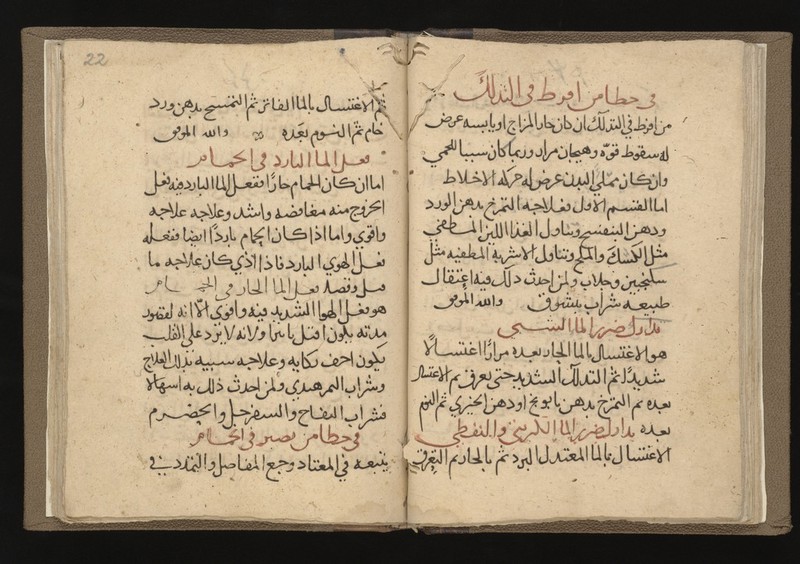 في خطا من افرط في التدلك
من افرط في التدلك ان كان حار المزاج او يابسه عرض
له سقوط قوة وهيجان مرار وربما كان سببا للحمي
وان كان ممتلي البدن عرض له حركة الاخلاط
اما القسم الاول فعلاجه التمرخ بدهن الورد
ودهن البنفسج وتناول الغذا اللين المطفي
مثل الكشك والملح وتناول الاشربة المطفيه مثل
سكنجبين وجلاب ولمن احدث ذلك فيه اعتقال
طبيعه شراب والله الموفق
تدارك ضرر الما الشبي
هو الاغتسال بالما الحار بعده مرارا اغتسالا
شديدا ثم التدلك الشديد حتى يعرق ثم الاغتسال
بعده ثم التمرخ بدهن بابونج او دهن الخيري ثم النوم
بعده تدارك ضرر الما الكبريتي والنفطي
الاغتسال بالما المعتدل البرد ثم بالحار ثم التعرق
22
ثم الاغتسال بالما الفاتر ثم التمسح بدهن ورد
خام ثم النوم بعده والله الموفق
فعل الما البارد في الحمام
اما ان كان الحمام حارا ففعل الما البارد فيه فعل
الخروج منه مغافصه واشد وعلاجه علاجه
واقوي واما اذا كان الحمام باردا ايضا ففعله
فعل الهوي البارد فاذا الذي كان علاجه ما
قبل وفصل فعل الما الحار في الحمام
هو فعل الهوا الشديد فيه واقوي الا انه لقصور
مدته يكون اقل تاثيرا ولانه لا يرد علي القلب
يكون اخف نكايه وعلاجه سببيه بذلك العلاج
وشراب التمر هندي ولمن احدث ذلك به اسهالا
فشراب التفاح والسفرجل والحصرم
في خطا من يصبر في الحمام
يتبعه في المعتاد وجع المفاصل والتمدد في